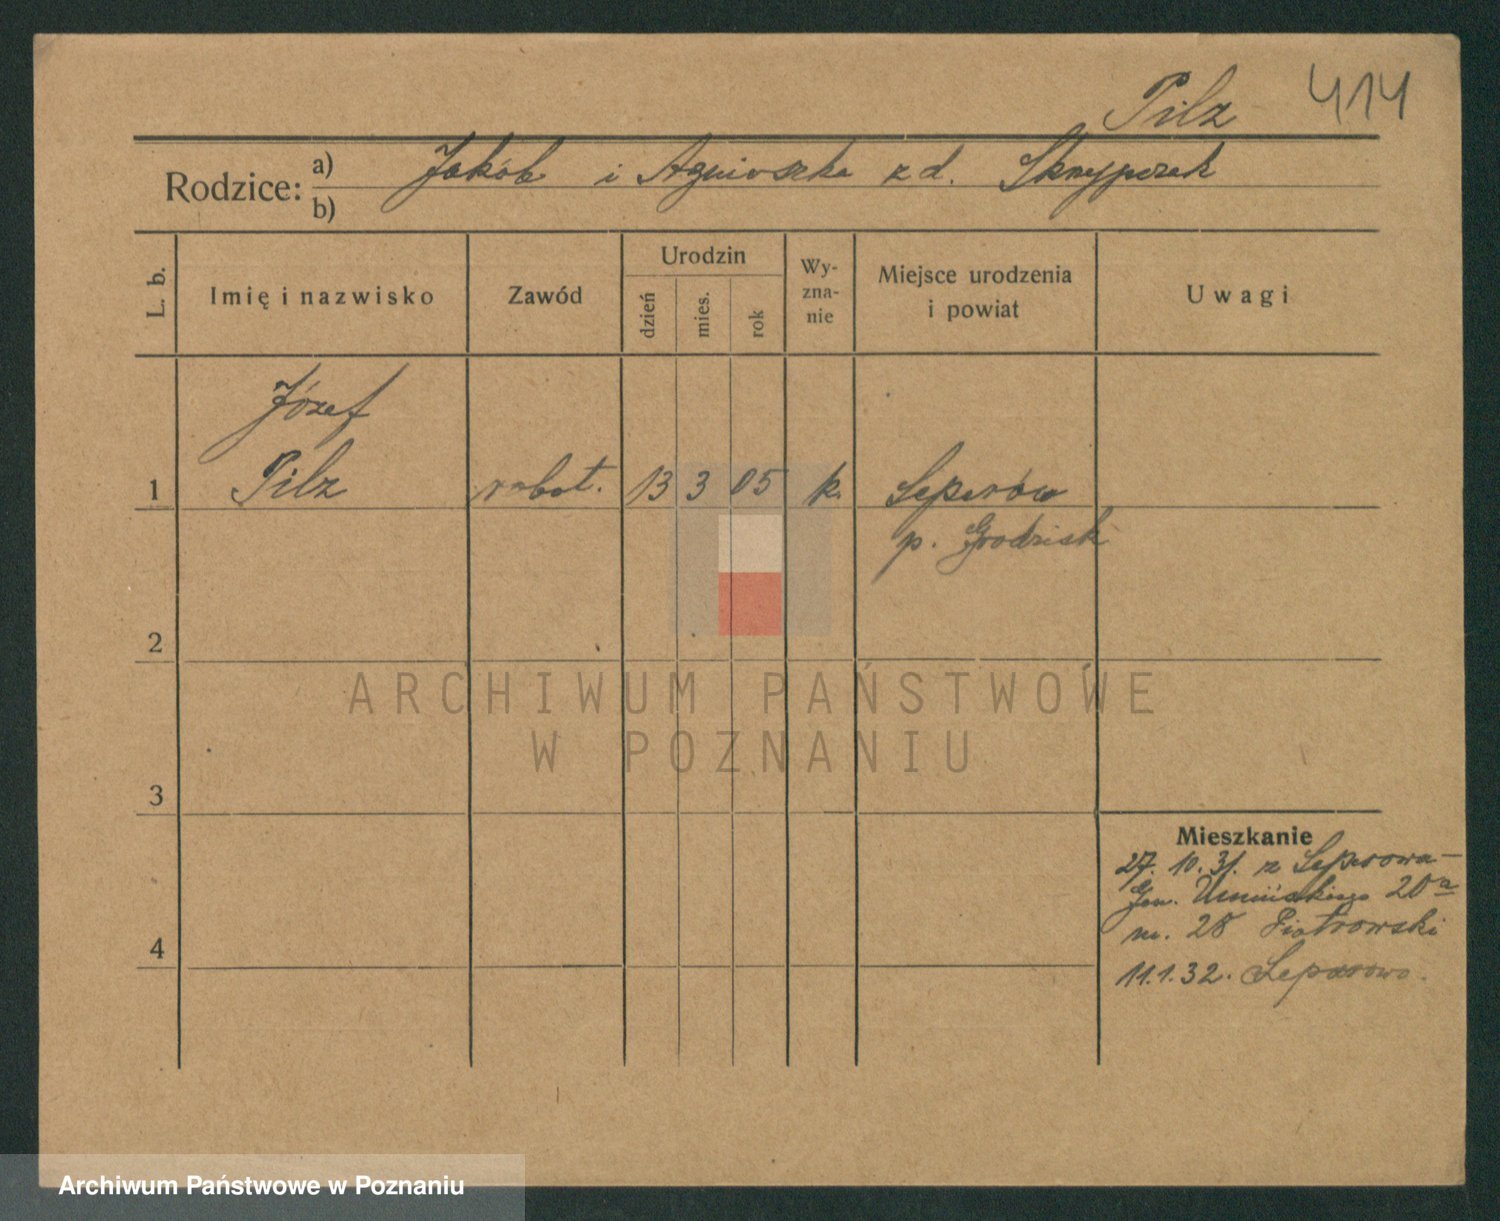 Pilz 414
Rodzice: a) b) Jakób i Agnieszka z d. Skrzypczak
L. b.
Imię i nazwisko
Zawód
Urodzin
dzień
mies.
rok
Wy-
zna-
nie
Miejsce urodzenia
i powiat
Uwagi
Józef
1 Pilz robot. 13 3 05 k. Separów
p. Grodzisk
2
ARCHIWUM PAŃSTWOWE
W POZNANIU
3
Mieszkanie
27. 10. 31. z Separowa-
Gen. Umińskiego 20a
m. 28 Piotrowski
4
11.1.32. Separowo.
Archiwum Państwowe w Poznaniu